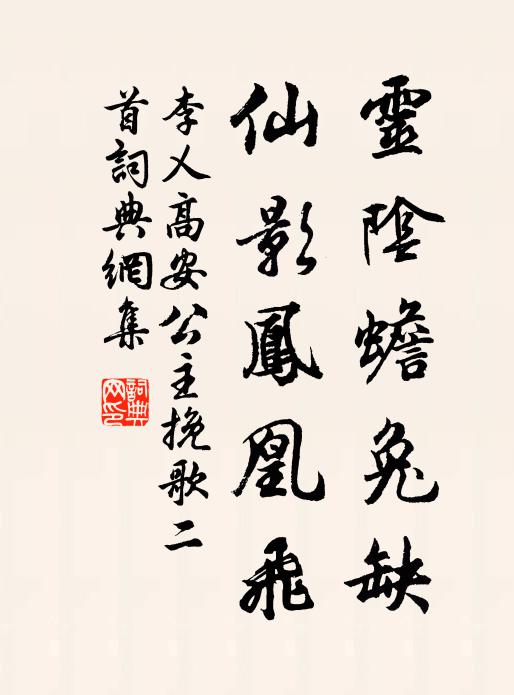 靈陰蟾兔缺
仙影鳳凰飛
李乂高安公主挽歌二
首詞典網集
詞典
网印